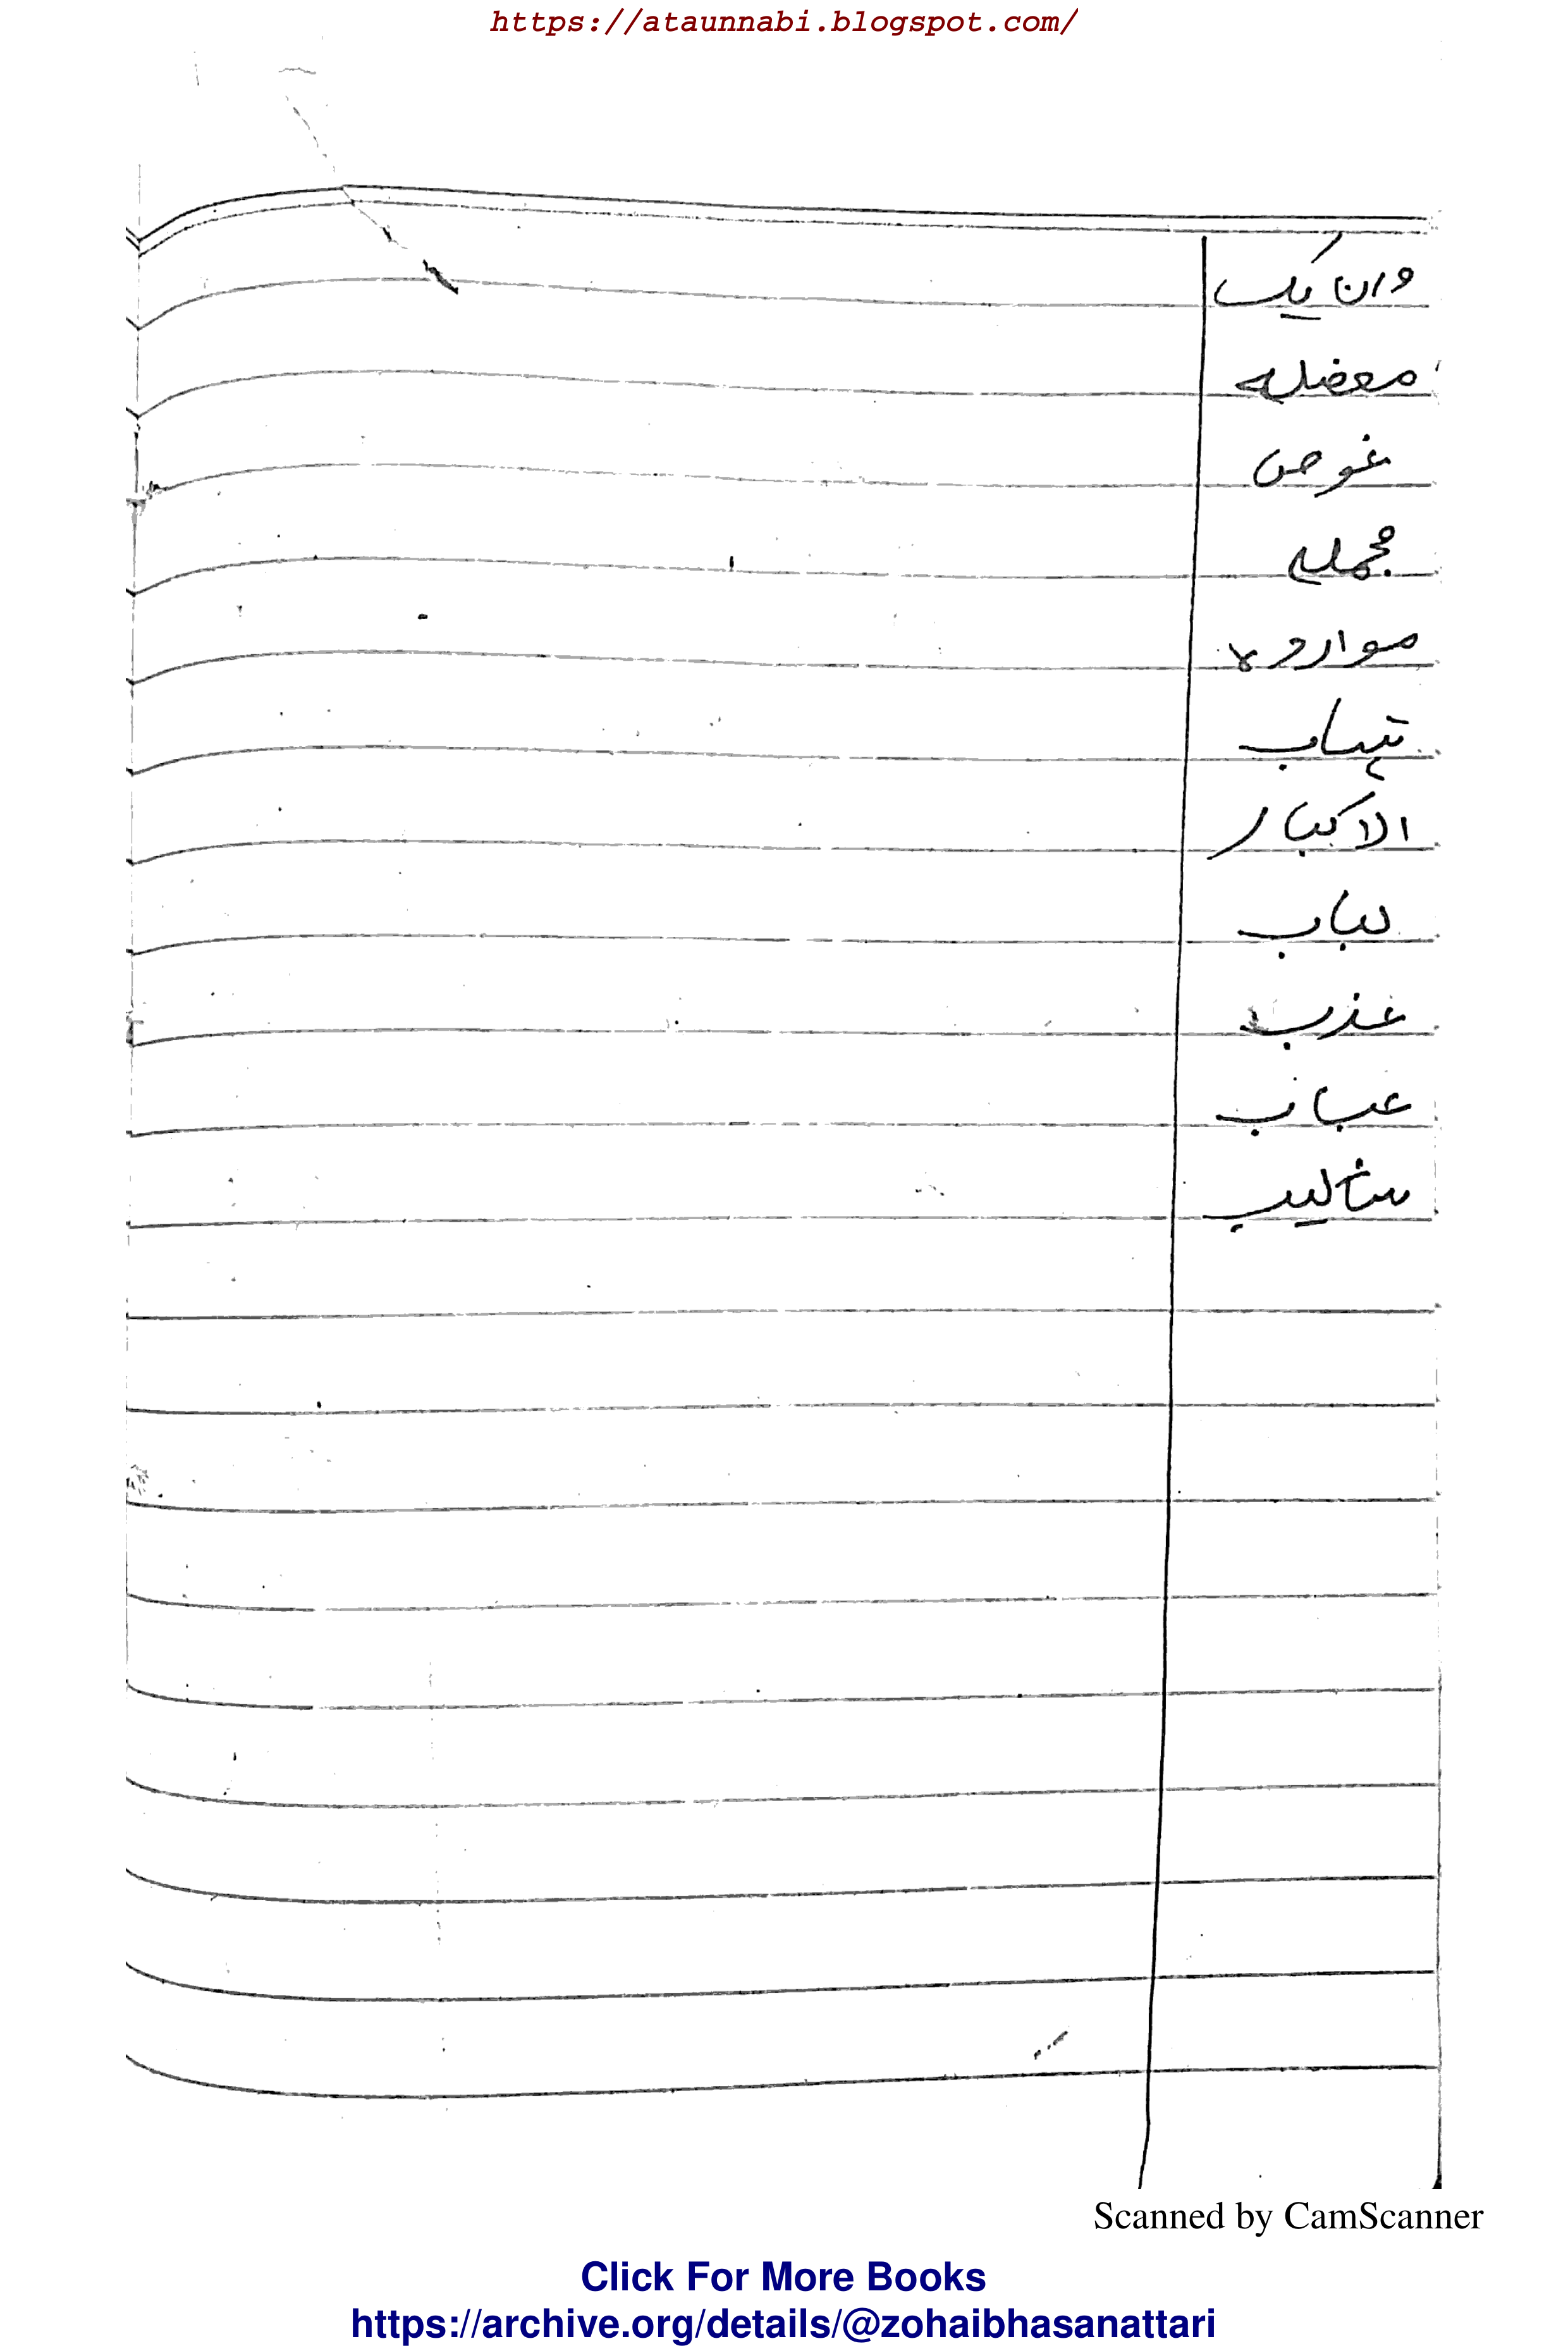 https://ataunnabi.blogspot.com/
وان یک
معضلہ
غوص
مجملہ
مواردہ
الاکبار
لباب
عذب
عباب
Scanned by CamScanner
Click For More Books
https://archive.org/details/@zohaibhasanattari